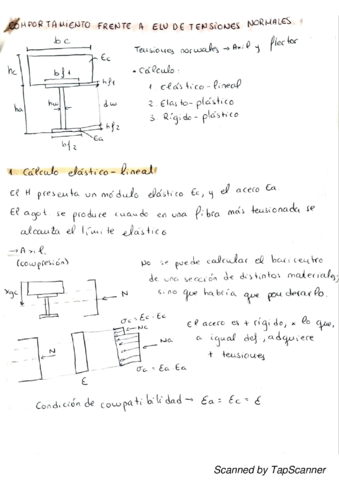 COMPORTAMIENTO FRENTE A ELU DE TENSIONES NORMALES
bc
Ec
hc
bf1
hf1
ha
hw
dw
hf2
bf2
Ea
Tensiones normales → Axil y flector
• Cálculo:
1 Elástico-lineal
2 Elasto-plástico
3 Rígido-plástico
1 Cálculo elástico-lineal
El H presenta un módulo elástico Ec, y el acero Ea
El agot se produce cuando en una fibra más tensionada se
alcanza el límite elástico
→ Axil
(compresión)
No se puede calcular el baricentro
de una sección de distintos materiales;
sino que habría que ponderarlo.
xgc
N
σc = Ec·εc
Nc
Na
N
ε
El acero es + rígido, x lo que,
a igual def, adquiere
+ tensiones
Condición de compatibilidad → εa = εc = ε
Scanned by TapScanner